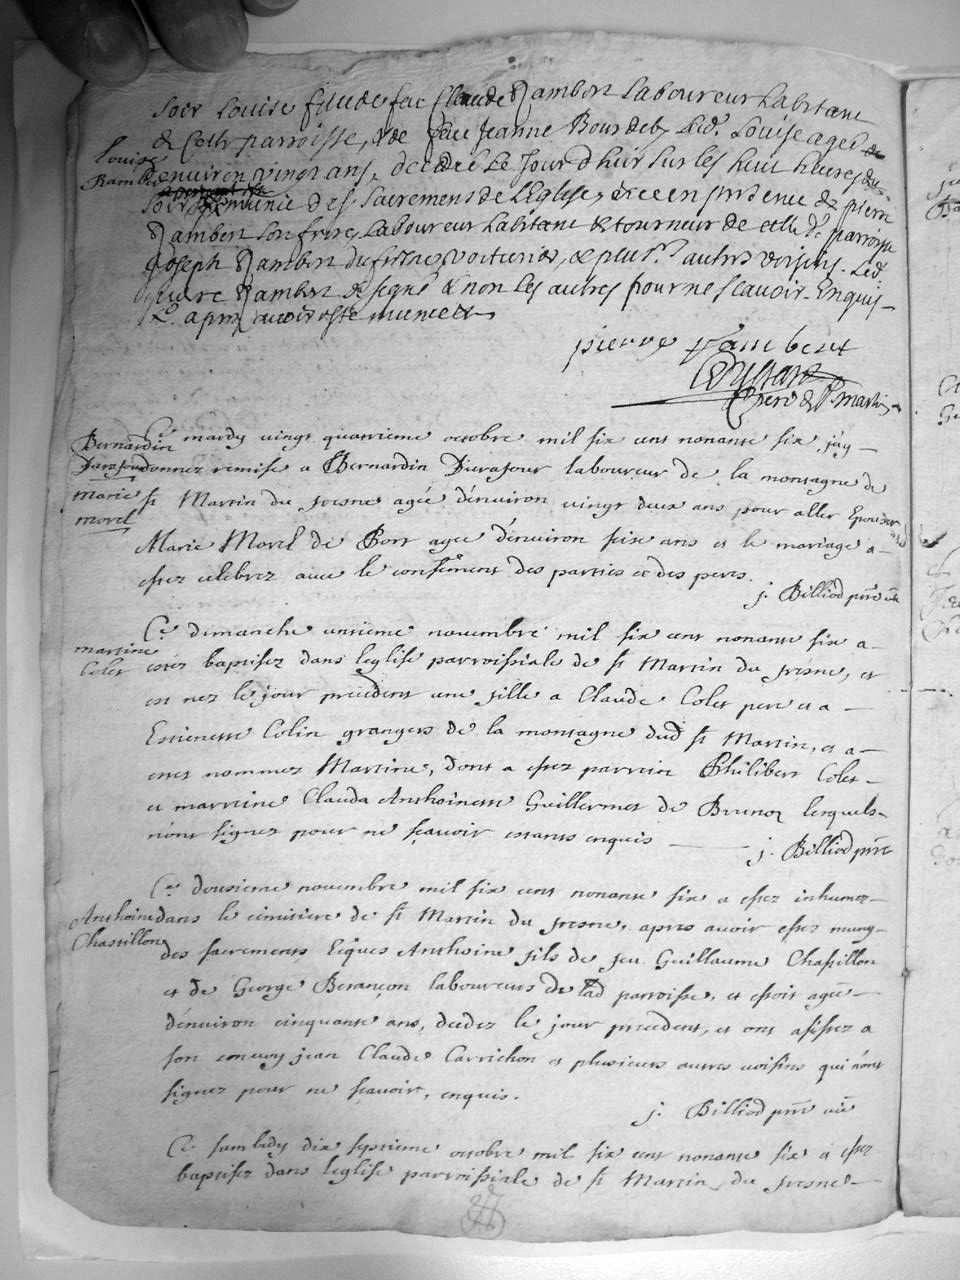 soir Louise fille de feu Claude Rambert laboureur habitant
de cette parroisse, & de feue Jeanne Bourdet, Led. Louise agee de
Louise
Rambert
denviron vingt ans, decedee le Jour dhuir sur les huit heures du
soir munie des sacremens de LEglise, & ce en presence de pierre
Rambert son frere, Laboureur habitant & tourneur de cette d. parroisse
Joseph Rambert du fresne, voiturier, & plus.rs autres voisins. Led.
pierre Rambert a signé & non les autres pour ne scavoir Enquis
pierre rambert
Curé de St. martin
Bernardin
Durafour
Marie
Morel
Ce mardy vingt quatrieme octobre mil six cent nonante six jay
donnez remise a Bernardin Durafour laboureur de la montagne de
st Martin du fresne agée d'environ vingt deux ans pour aller Epouser
Marie Morel de Port agee d'environ seize ans et le mariage a
estez celebrez avec le consentement des parties et des peres.
j. Billiod prre vic
Martine
Colet
Ce dimanche unsieme novembre mil six cent nonante six a
estez baptisez dans leglise parroissiale de st Martin du fresne, et
est nez le jour precedent une fille a Claude Colet pere et a
Estienette Colin grangers de la montagne dud st Martin, et a
estez nommez Martine, dont a estez parrein Philibert Colet
et marreine Clauda Anthoinette Guillermet de Brunoz lesquels
n'ont signez pour ne sçavoir estants enquis
j. Billiod prre
Anthoine
Chastillon
Ce dousieme novembre mil six cent nonante six a estez inhumez
dans le cimitiere de st Martin du fresne, apres avoir estez muny
des sacrements Anthoine fils de feu Guillaume Chastillon
et de George Besançon laboureurs de lad parroisse, et estoit agée
d'environ cinquante ans, decedez le jour precedent, et ont assistez a
son convoy jean Claude Carrichon et plusieurs autres voisins qui n'ont
signez pour ne sçavoir, enquis.
j. Billiod prre vic
Ce sambedy dix septieme octobre mil six cent nonante six a estez
baptisez dans leglise parroissiale de st Martin du fresne